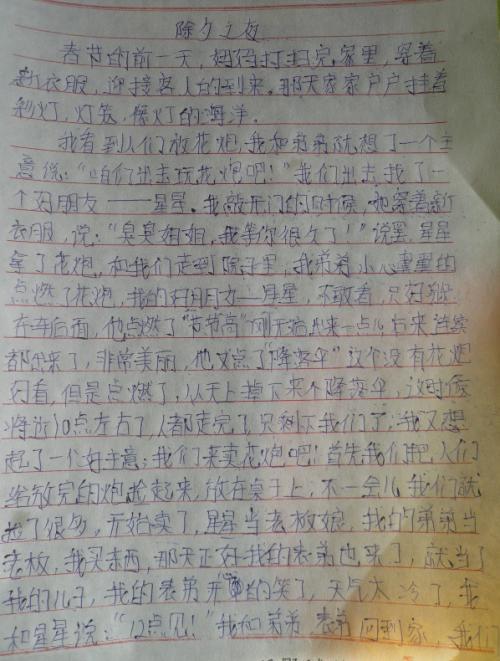 除夕之夜
春节的前一天，妈妈打扫完家里，穿着
新衣服，迎接客人的到来。那天家家户户挂着
彩灯，灯笼，像灯的海洋。
我看到人们放花炮，我和弟弟就想了一个主
意说：“咱们出去玩花炮吧！”我们出去找了一
个好朋友——星星。我敲开门的时候，她穿着新
衣服，说：“臭臭姐姐，我等你很久了！”说罢，星星
拿了花炮，和我们走到院子里，我弟弟小心翼翼的
点燃了花炮，我的好朋友—星星，不敢看，只好躲
在车后面，他点燃了“节节高”刚开始出来一点儿，后来连续
都出来了，非常美丽，他又点了“降落伞”这个没有花炮
好看，但是点燃了，从天上掉下来个降落伞，这时候
将近10点左右了，人都走完了，只剩下我们了，我又想
起了一个好主意；我们来卖花炮吧！首先我们把人们
给放完的炮捡起来，放在桌子上，不一会儿我们就
捡了很多，开始卖了，星星当老板娘，我的弟弟当
老板，我买东西，那天正好我的表弟也来了，就当了
我的儿子，我的表弟开的笑了，天气太冷了，我
和星星说：“12点见！”我和弟弟 表弟回到家，我们